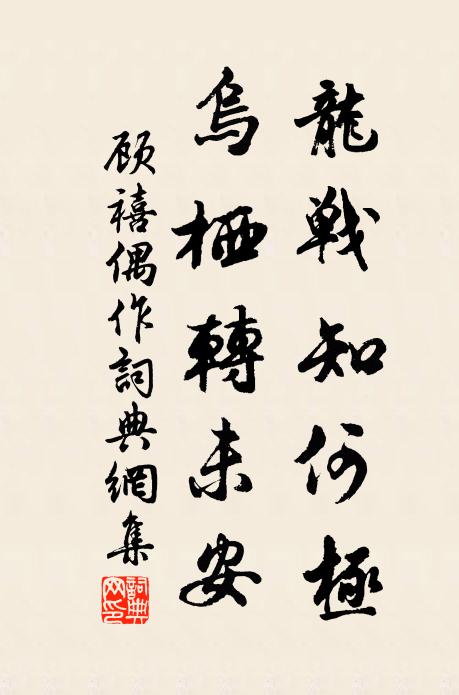 龍戰知何極
烏栖轉未安
顾禧偶作詞典網集
詞典網印